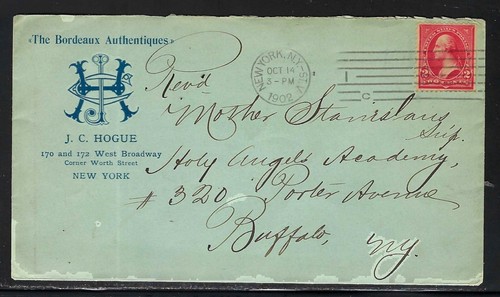 «The Bordeaux Authentiques»
J. C. HOGUE
170 and 172 West Broadway
Corner Worth Street
NEW YORK
NEW YORK, N.Y.-STA.
OCT 14
3-PM
1902
C
2 2
Rev'd
Mother Stanislaus
Sup.
Holy Angels Academy,
# 320 Porter Avenue
Buffalo,
N.Y.